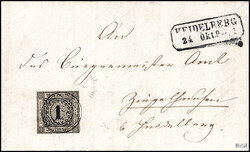 HEIDELBERG
24 Okt.
An
das Bürgermeister Amt
1
Ziegelhausen
b Heidelberg.